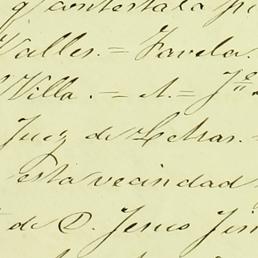 q. contesta la pi
Valles. = Favela.
Villa. = A. = J
Juez de Letras. =
esta vecindad
de D. Jesus Jim